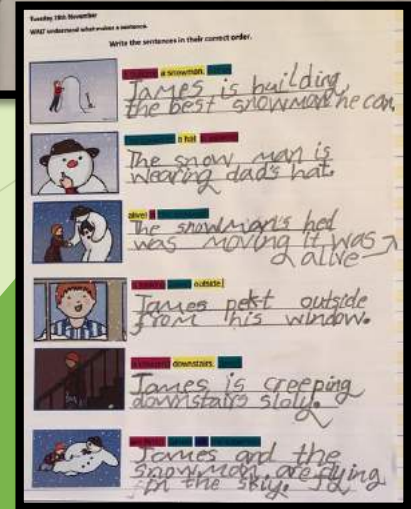 Tuesday 19th November
WALT understand what makes a sentence.
Write the sentences in their correct order.
a snowman.
James is building
the best snowman he can.
a hat
The snow man is
wearing dad's hat.
alive! is
The snowman's hed
was moving it was
alive
outside.
James pekt outside
from his window.
downstairs.
James is creeping
downstairs sloly.
James and the
snowman are flying
in the skiy.